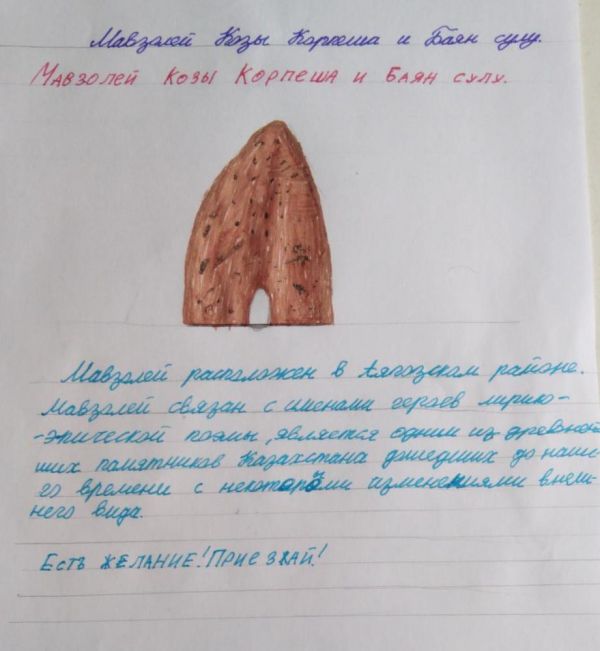 Мавзолей Козы Корпеша и Баян сулу.
Мавзолей Козы Корпеша и Баян сулу.
Мавзолей расположен в Аягозском районе.
Мавзолей связан с именами героев лирико-
-эпической поэмы, является одним из древней
ших памятников Казахстана дошедших до наше-
го времени с некоторыми изменениями внеш-
него вида.
Есть желание! Приезжай!